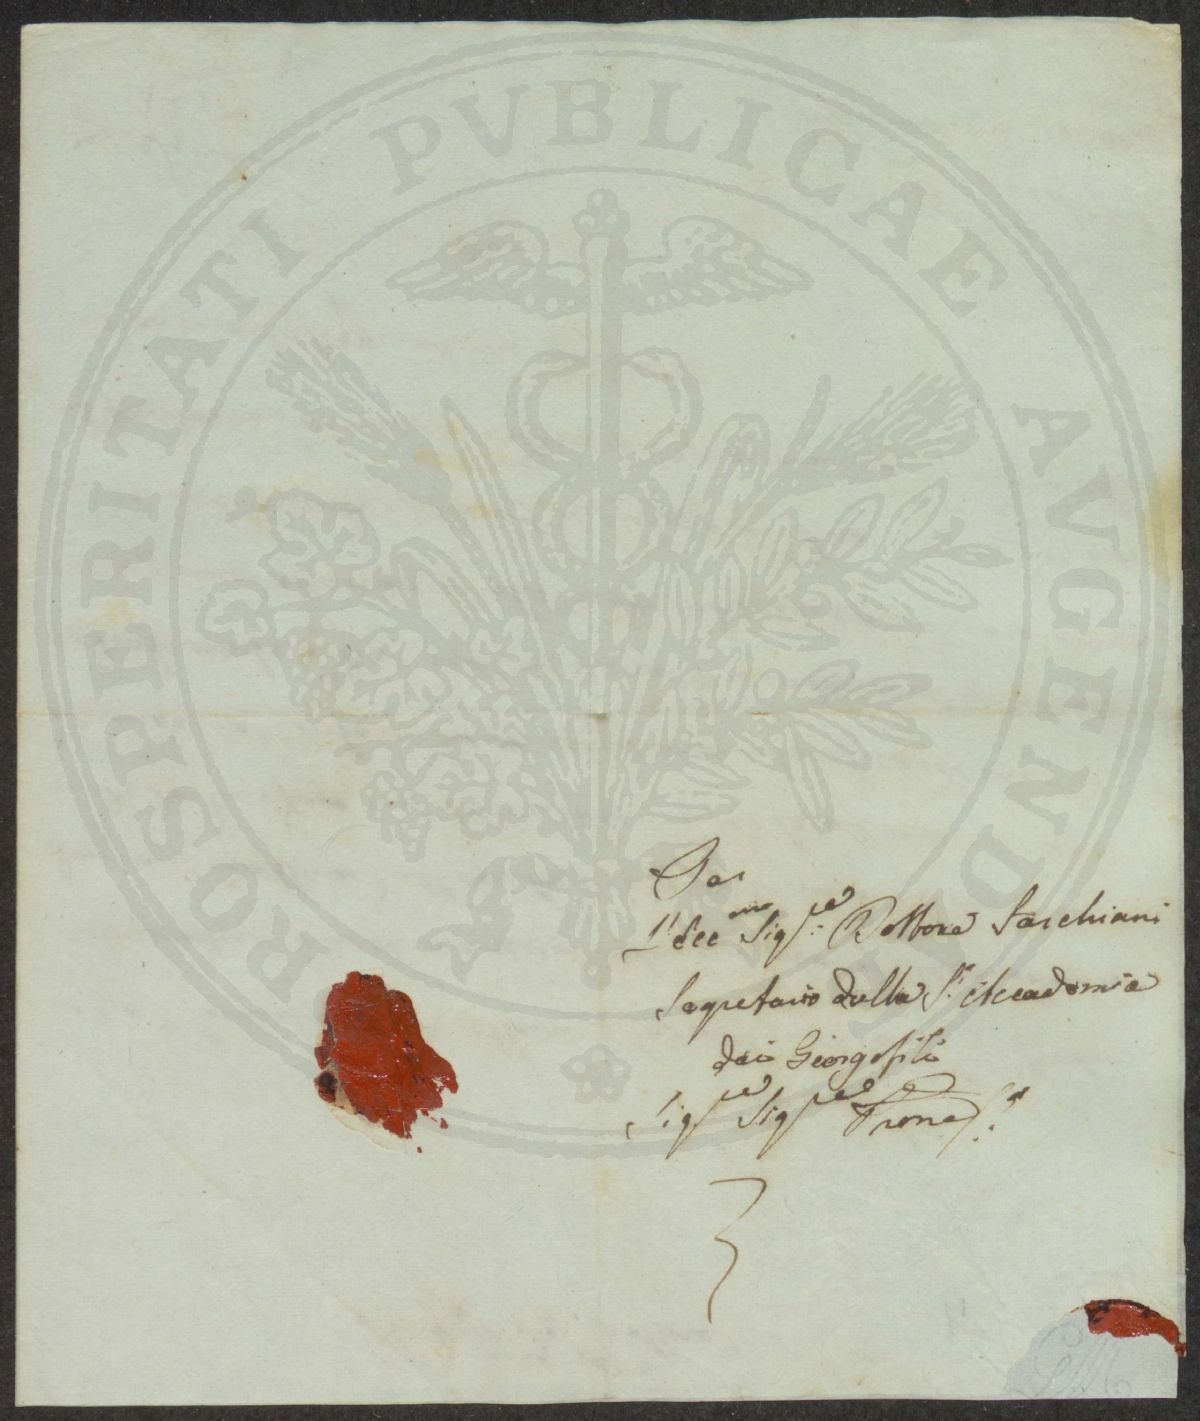 PROSPERITATI PVBLICAE AVGENDAE
Ill. Ecc.mo Sig.re Dottore Sarchiani
Segretario della R. Accademia
dei Georgofili
Sig.re Sig.re Prone